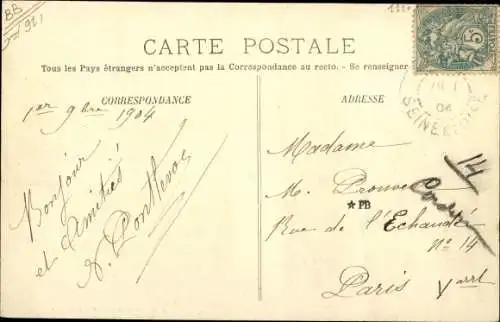 BB
CARTE POSTALE
Tous les Pays étrangers n'acceptent pas la Correspondance au recto. - Se renseigner
CORRESPONDANCE
ADRESSE
1er 9bre 1904
Bonjour
et Amitiés
Madame
M. Prouve
★PB
Rue de l'Echaudé
No 14
Paris Varrt
14
5c
04
SEINE